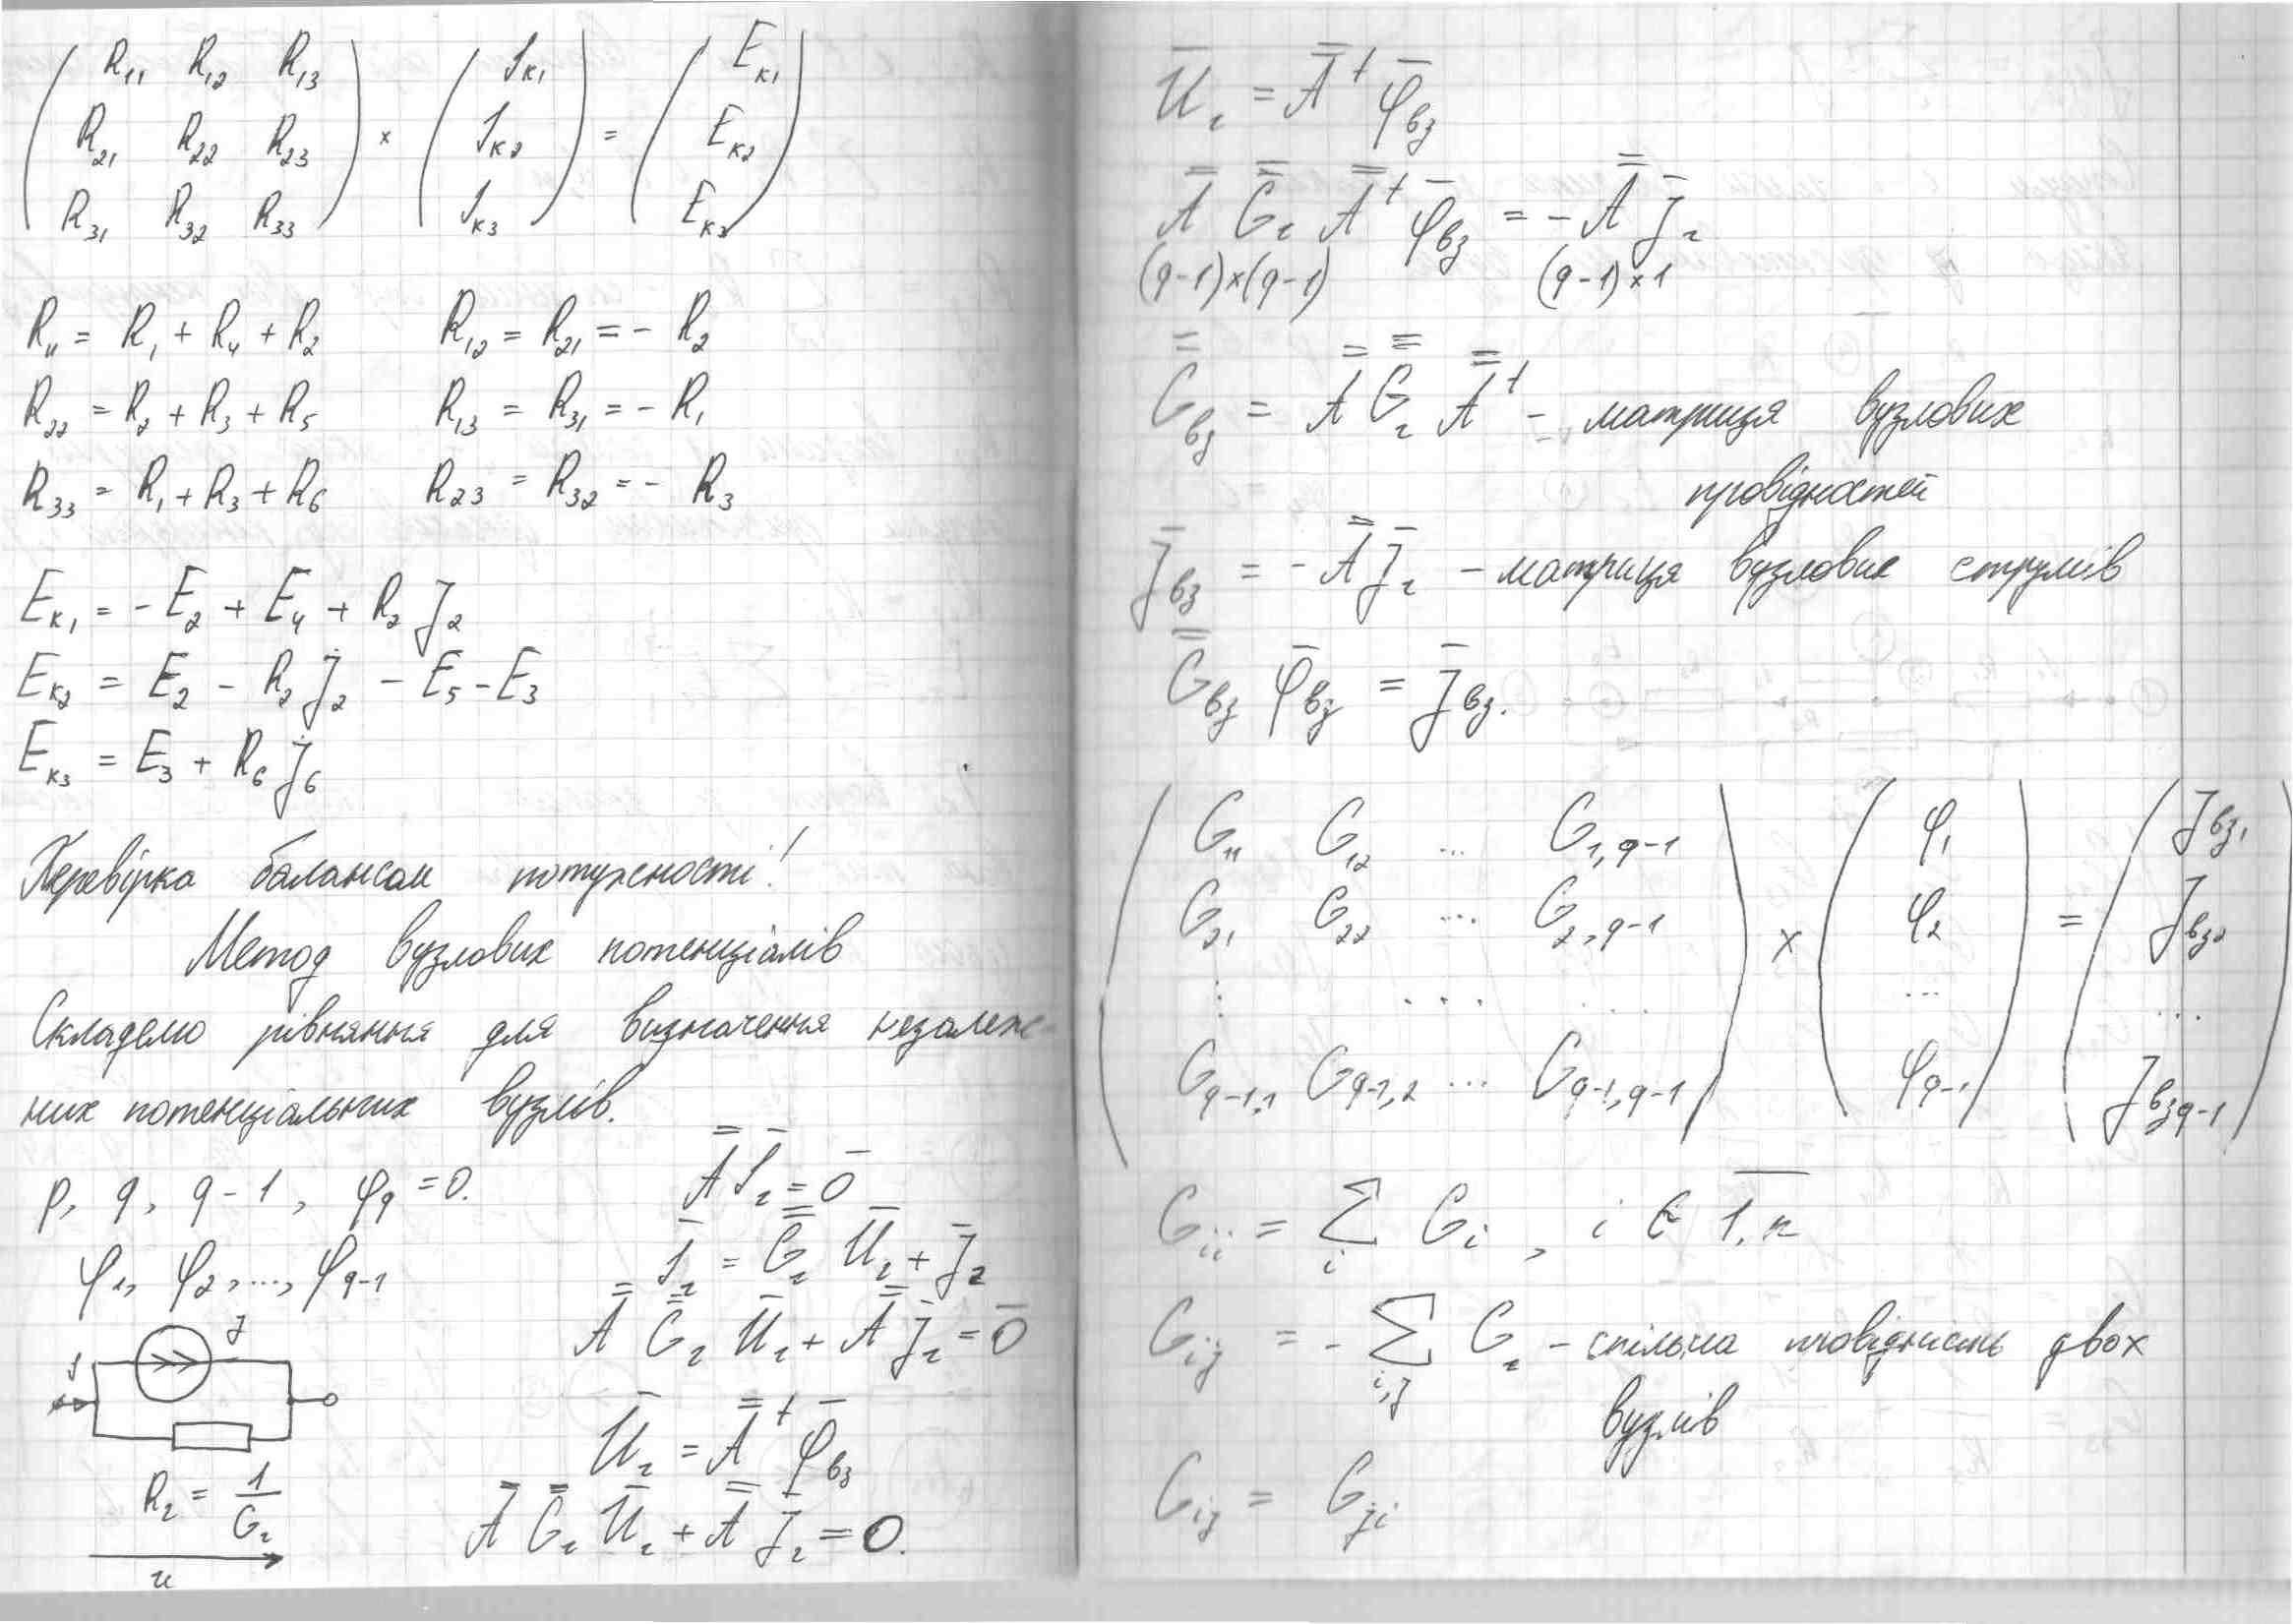 ( R₁₁ R₁₂ R₁₃ ) × ( I_к1 ) = ( E_к1 )
( R₂₁ R₂₂ R₂₃ ) ( I_к2 ) ( E_к2 )
( R₃₁ R₃₂ R₃₃ ) ( I_к3 ) ( E_к3 )
R₁₁ = R₁ + R₄ + R₂ R₁₂ = R₂₁ = - R₂
R₂₂ = R₂ + R₃ + R₅ R₁₃ = R₃₁ = - R₁
R₃₃ = R₁ + R₃ + R₆ R₂₃ = R₃₂ = - R₃
E_к1 = - E₂ + E₄ + R₂ J₂
E_к2 = E₂ - R₂ J₂ - E₅ - E₃
E_к3 = E₃ + R₆ J₆
Перевірка балансом потужності!
Метод вузлових потенціалів
Складемо рівняння для визначення незалеж-
них потенціальних вузлів.
p, q, q-1, φ_q = 0.
φ₁, φ₂, ..., φ_q-1
J
I
R_г = 1/G_г
u
A̿ I̅_г = 0̅
I̅_г = G̿_г U̅_г + J̅_г
A̿ G̿_г U̅_г + A̿ J̅_г = 0̅
U̅_г = A̿ᵗ φ̅_вз
A̿ G̿_г U̅_г + A̿ J̅_г = 0.
U̅_г = A̿ᵗ φ̅_вз
A̿ G̿_г A̿ᵗ φ̅_вз = - A̿ J̅_г
(q-1)×(q-1) (q-1)×1
G̿_вз = A̿ G̿_г A̿ᵗ - матриця вузлових
провідностей
J̅_вз = - A̿ J̅_г - матриця вузлових струмів
G̿_вз φ̅_вз = J̅_вз.
( G₁₁ G₁₂ ... G_1,q-1 ) × ( φ₁ ) = ( J_вз1 )
( G₂₁ G₂₂ ... G_2,q-1 ) ( φ₂ ) ( J_вз2 )
( ⋮ .... .... ) ( ... ) ( ... )
( G_q-1,1 G_q-1,2 ... G_q-1,q-1 ) ( φ_q-1 ) ( J_взq-1 )
G_ii = Σ_i G_i , i ∈ 1,n̅
G_ij = - Σ_i,j G_г - спільна провідність двох
вузлів
G_ij = G_ji